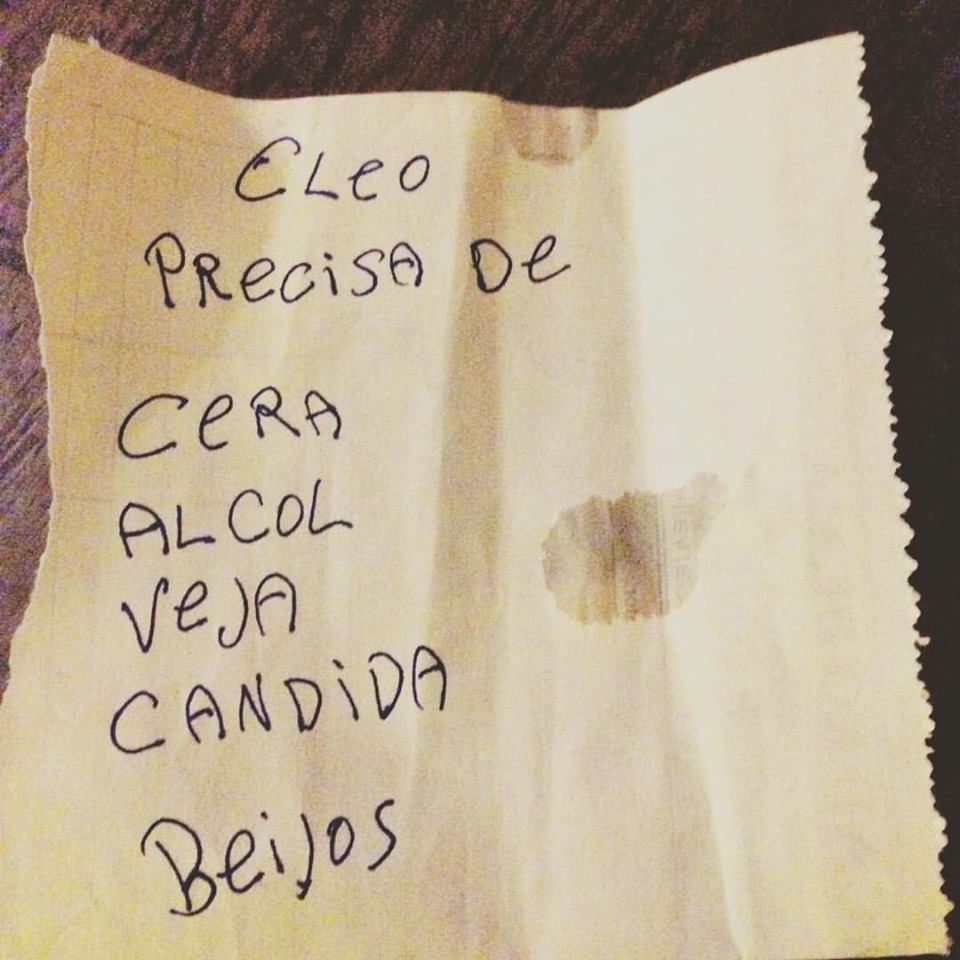 CLeo
PReciSA De
CeRA
ALCOL
VeJA
CANDiDA
BeiJos